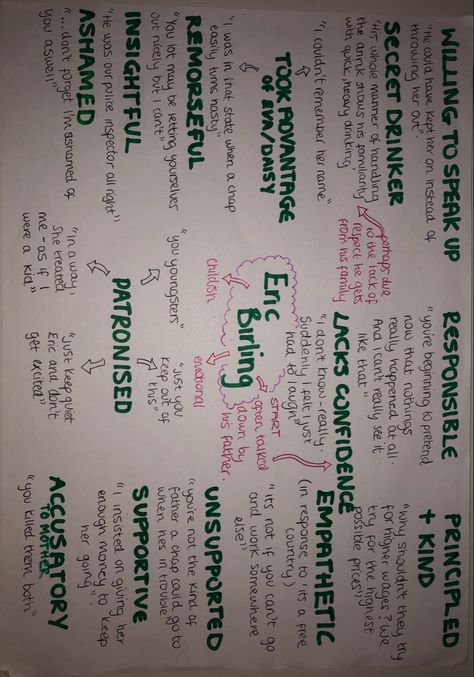 WILLING TO SPEAK UP
"He could have kept her on instead of
throwing her out".
SECRET DRINKER
"His whole manner of handling
the drink shows his familiarity
with quick, heavy drinking
perhaps due
to the lack of
respect he gets
from his family
"I couldn't remember her name"
TOOK ADVANTAGE
OF EVA/DAISY
"I was in that state when a chap
easily turns nasty"
REMORSEFUL
"You lot may be letting yourselves
out nicely but I can't"
INSIGHTFUL
"He was our police inspector all right"
ASHAMED
"... don't forget I'm ashamed of
you aswell"
RESPONSIBLE
"you're beginning to pretend
now that nothings
really happened at all.
And I can't really see it
like that"
LACKS CONFIDENCE
"I don't know - really.
Suddenly I felt I just
had to laugh"
Eric
Birling
childish
emotional
START
often talked
down by
his father.
"you youngsters"
"Just you
keep out of
this"
PATRONISED
"in a way,
she treated
me - as if I
were a kid"
"Just keep quiet
Eric and don't
get excited"
PRINCIPLED
+ KIND
"why shouldn't they try
for higher wages? We
try for the highest
possible prices")
EMPATHETIC
(in response to: its a free
country)
"it's not if you can't go
and work somewhere
else"
UNSUPPORTED
"you're not the kind of
father a chap could go to
when hes in trouble
SUPPORTIVE
"I insisted on giving her
enough money to keep
her going".
ACCUSATORY
TO MOTHER
"you killed them both"